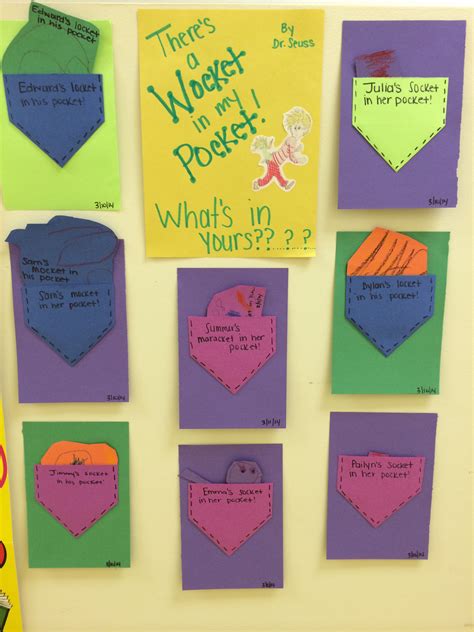 Edward's locket
in his pocket!
Edward's locket
in his pocket!
3/10/14
There's
a
Wocket
in my
Pocket!
By
Dr. Seuss
What's in
yours????
Julia's Socket
in her pocket!
3/10/14
Sam's
mocket in
his pocket!
Sam's mocket
in his pocket!
3/10/14
Summur's
maracket in her
pocket!
3/11/14
Dylan's locket
in his pocket!
3/10/14
Jimmy's socket
in his pocket!
3/10/14
Emma's socket
in her pocket!
Pailyn's socket
in her pocket!
3/10/14